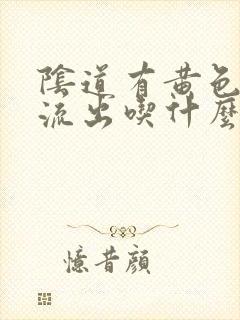 陰道有黃色
流出喫什麼
憶昔顏